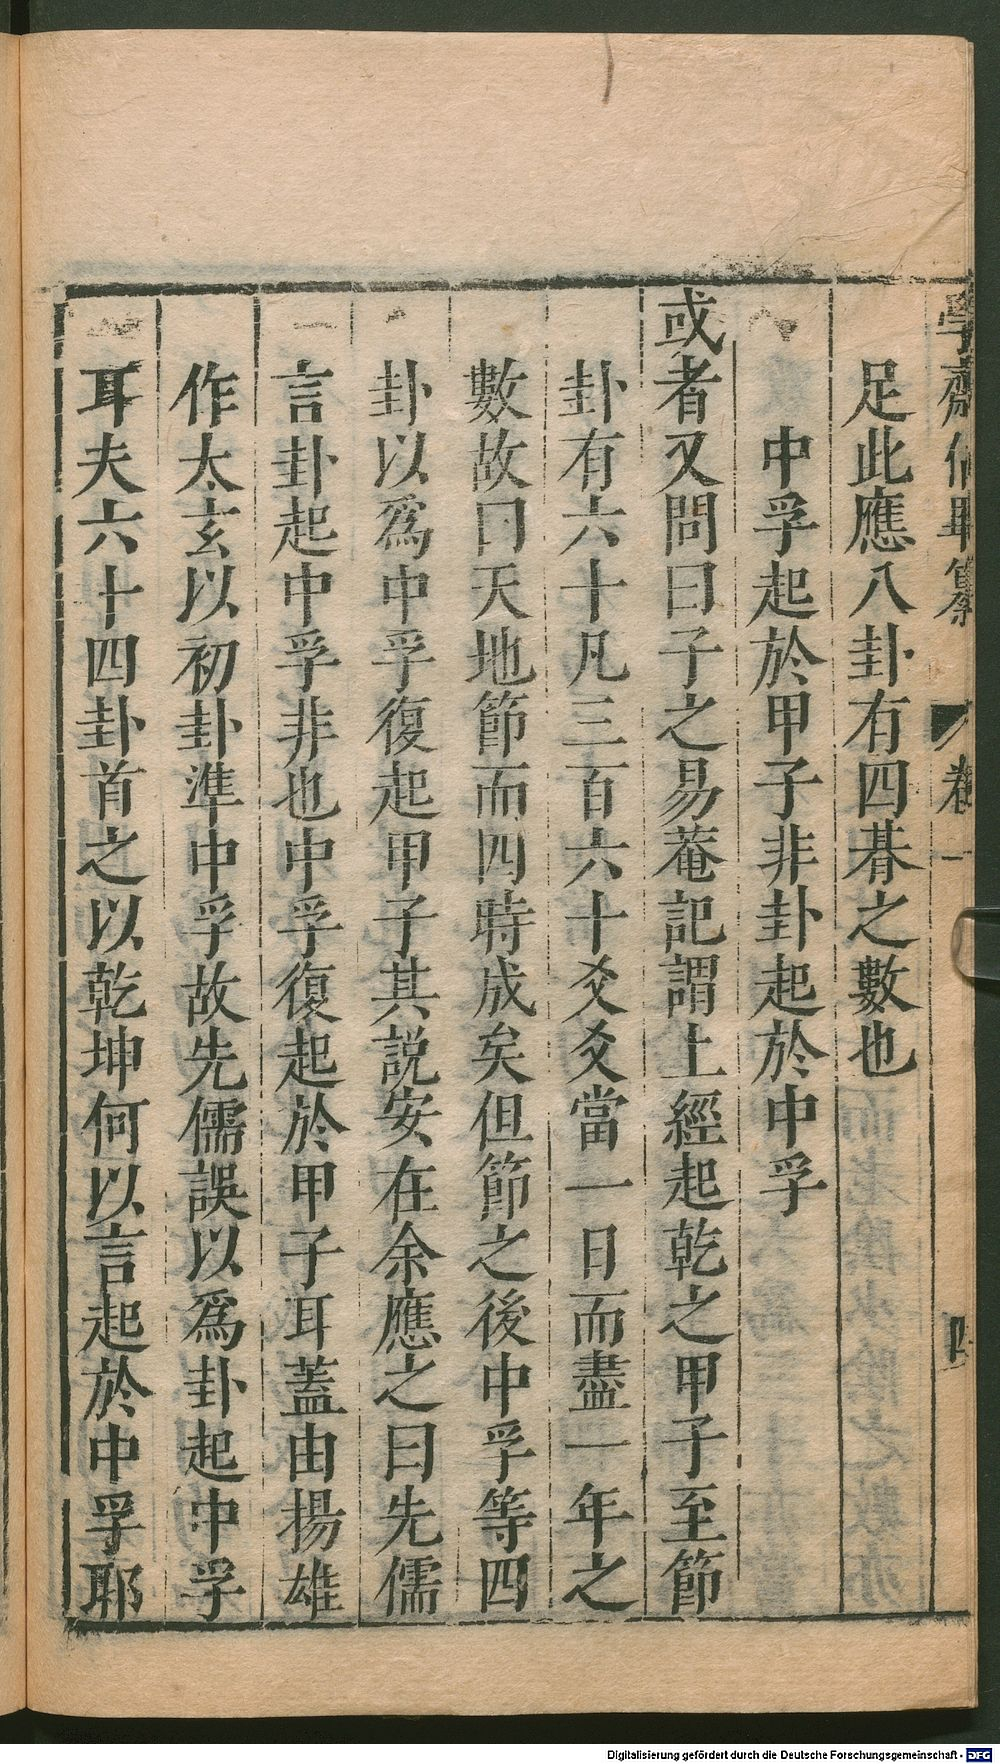 學齋佔畢纂 卷一 四
足此應八卦有四朞之數也
中孚起於甲子非卦起於中孚
或者又問曰子之易菴記謂上經起乾之甲子至節
卦有六十凡三百六十爻爻當一日而盡一年之
數故曰天地節而四時成矣但節之後中孚等四
卦以爲中孚復起甲子其説安在余應之曰先儒
言卦起中孚非也中孚復起於甲子耳蓋由揚雄
作太玄以初卦準中孚故先儒誤以爲卦起中孚
耳夫六十四卦首之以乾坤何以言起於中孚耶
Digitalisierung gefördert durch die Deutsche Forschungsgemeinschaft - DFG